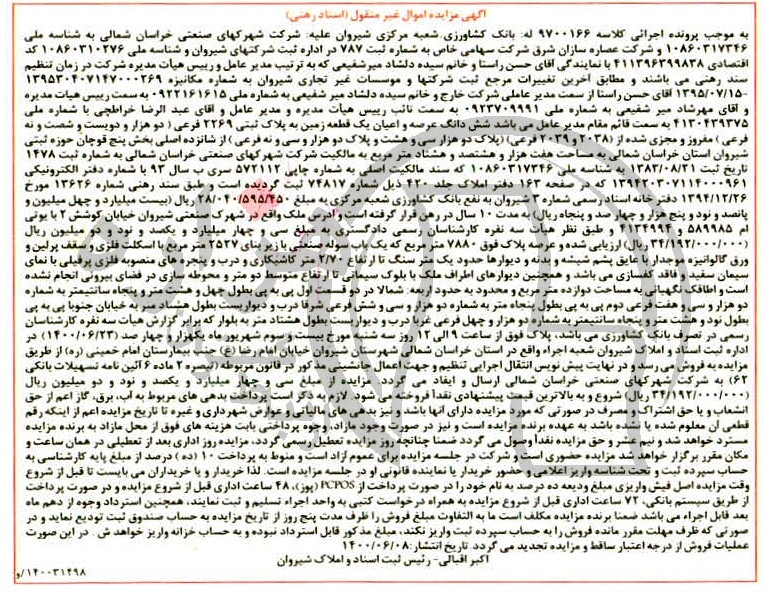 آگهی مزایده اموال غیر منقول (اسناد رهنی)
به موجب پرونده اجرائی کلاسه ۹۷۰۰۱۶۶ له: بانک کشاورزی شعبه مرکزی شیروان علیه: شرکت شهرکهای صنعتی خراسان شمالی به شناسه ملی
۱۰۸۶۰۳۱۷۳۴۶ و شرکت عصاره سازان شرق شرکت سهامی خاص به شماره ثبت ۷۸۷ در اداره ثبت شرکتهای شیروان و شناسه ملی ۱۰۸۶۰۳۱۰۲۷۶ کد
اقتصادی ۴۱۱۳۹۶۳۹۹۸۳۸ با نمایندگی آقای حسن راستا و خانم سیده دلشاد میرشفیعی که به ترتیب مدیر عامل و رییس هیات مدیره شرکت در زمان تنظیم
سند رهنی می باشند و مطابق آخرین تغییرات مرجع ثبت شرکتها و موسسات غیر تجاری شیروان به شماره مکانیزه ۱۳۹۵۳۰۴۰۷۱۴۷۰۰۰۲۶۹
-۱۳۹۵/۰۷/۱۵ آقای حسن راستا از سمت مدیر عاملی شرکت خارج و خانم سیده دلشاد میر شفیعی به شماره ملی ۰۹۲۲۱۶۱۶۱۵ به سمت رییس هیات مدیره
و آقای مهرشاد میر شفیعی به شماره ملی ۰۹۲۳۷۰۹۹۹۱ به سمت نائب رییس هیأت مدیره و مدیر عامل و آقای عبد الرضا خراطچی با شماره ملی
۴۱۳۰۴۳۹۳۷۵ به سمت قائم مقام مدیر عامل می باشد شش دانگ عرصه و اعیان یک قطعه زمین به پلاک ثبتی ۲۲۶۹ فرعی ( دو هزار و دویست و شصت و نه
فرعی ) مفروز و مجزی شده از (۲۰۳۸ و ۲۰۳۹ فرعی) (پلاک دو هزار سی و هشت و پلاک دو هزار و سی و نه فرعی ) از شانزده اصلی بخش پنج قوچان حوزه ثبتی
شیروان استان خراسان شمالی به مساحت هفت هزار و هشتصد و هشتاد متر مربع به مالکیت شرکت شهرکهای صنعتی خراسان شمالی به شماره ثبت ۱۴۷۸
تاریخ ثبت ۱۳۸۳/۰۸/۲۱ به شناسه ملی ۱۰۸۶۰۳۱۷۳۴۶ که سند مالکیت اصلی به شماره چاپی ۵۷۲۱۱۲ سری ب سال ۹۳ با شماره دفتر الکترونیکی
۱۳۹۴۲۰۳۰۷۱۱۴۰۰۰۹۶۱ که در صفحه ۱۶۳ دفتر املاک جلد ۴۲۰ ذیل شماره ۷۴۸۱۷ ثبت گردیده است و طبق سند رهنی شماره ۱۳۶۲۶ مورخ
۱۳۹۴/۱۲/۲۶ دفتر خانه اسناد رسمی شماره ۳ شیروان به نفع بانک کشاورزی شعبه مرکزی به مبلغ ۲۸/۰۴۰/۵۹۵/۴۵۰ ریال (بیست میلیارد و چهل میلیون و
پانصد و نود و پنج هزار و چهار صد و پنجاه ریال) به مدت ۱۰ سال در رهن قرار گرفته است و آدرس ملک واقع در شهرک صنعتی شیروان خیابان کوشش ۲ با یوتی
ام ۵۸۹۹۸۵ و ۴۱۳۴۹۹۴ و طبق نظر هیأت سه نفره کارشناسان رسمی دادگستری به مبلغ سی و چهار میلیارد و یکصد و نود و دو میلیون ریال
(۳۴/۱۹۲/۰۰۰/۰۰۰ ریال) ارزیابی شده و عرصه پلاک فوق ۷۸۸۰ متر مربع که یک باب سوله صنعتی با زیر بنای ۲۵۲۷ متر مربع با اسکلت فلزی و سقف پرلین و
ورق گالوانیزه موجدار با عایق پشم شیشه و بدنه و دیوارها حدود یک متر سنگ تا ارتفاع ۲/۷۰ متر کاشیکاری و درب و پنجره های منصوبه فلزی پرفیلی با نمای
سیمان سفید و فاقد کفسازی می باشد و همچنین دیوارهای اطراف ملک با بلوک سیمانی تا ارتفاع متوسط دو متر و محوطه سازی در فضای بیرونی انجام نشده
است و اطاقک نگهبانی به مساحت دوازده متر مربع و محدود به حدود اربعه: شمالا در دو قسمت اول پی به پی بطول چهل و هشت متر و پنجاه سانتیمتر به شماره
دو هزار و سی و هفت فرعی دوم پی به پی بطول پنجاه متر به شماره دو هزار و سی و شش فرعی شرقا درب و دیواریست بطول هشتاد متر به خیابان جنوبا پی به پی
بطول نود و هشت متر و پنجاه سانتیمتر به شماره دو هزار و چهل فرعی غربا درب و دیواریست بطول هشتاد متر به بلوار که برابر گزارش هیأت سه نفره کارشناسان
رسمی در تصرف بانک کشاورزی می باشد، پلاک فوق از ساعت ۹ الی ۱۲ روز سه شنبه مورخ بیست و سوم شهریور ماه یکهزار و چهار صد (۱۴۰۰/۰۶/۲۳) در
اداره ثبت اسناد و املاک شیروان شعبه اجراء واقع در استان خراسان شمالی شهرستان شیروان خیابان امام رضا (ع) جنب بیمارستان امام خمینی (ره) از طریق
مزایده به فروش می رسد و در نهایت پیش نویس انتقال اجرایی تنظیم و جهت اعمال جانشینی مذکور در قانون مربوطه (تبصره ۲ ماده ۶ آئین نامه تسهیلات بانکی
۶۲) به شرکت شهرکهای صنعتی خراسان شمالی ارسال و ایفاد می گردد. مزایده از مبلغ سی و چهار میلیارد و یکصد و نود و دو میلیون ریال
(۳۴/۱۹۲/۰۰۰/۰۰۰ ریال) شروع و به بالاترین قیمت پیشنهادی نقداً فروخته می شود. لازم به ذکر است پرداخت بدهی های مربوط به آب، برق، گاز اعم از حق
انشعاب و یا حق اشتراک و مصرف در صورتی که مورد مزایده دارای آنها باشد و نیز بدهی های مالیاتی و عوارض شهرداری و غیره تا تاریخ مزایده اعم از اینکه رقم
قطعی آن معلوم شده یا نشده باشد به عهده برنده مزایده است و نیز در صورت وجود مازاد، وجوه پرداختی بابت هزینه های فوق از محل مازاد به برنده مزایده
مسترد خواهد شد و نیم عشر و حق مزایده نقداً وصول می گردد ضمنا چنانچه روز مزایده تعطیل رسمی گردد، مزایده روز اداری بعد از تعطیلی در همان ساعت و
مکان مقرر برگزار خواهد شد مزایده حضوری است و شرکت در جلسه مزایده برای عموم آزاد است و منوط به پرداخت ۱۰ (ده ) درصد از مبلغ پایه کارشناسی به
حساب سپرده ثبت و تحت شناسه واریز اعلامی و حضور خریدار یا نماینده قانونی او در جلسه مزایده است. لذا خریدار و یا خریداران می بایست تا قبل از شروع
وقت مزایده اصل فیش واریزی مبلغ ودیعه ده درصد به نام خود را در صورت پرداخت از PCPOS (پوز)، ۴۸ ساعت اداری قبل از شروع مزایده و در صورت پرداخت
از طریق سیستم بانکی، ۷۲ ساعت اداری قبل از شروع مزایده به همراه درخواست کتبی به واحد اجراء تسلیم و ثبت نمایند، همچنین استرداد وجوه از دهم ماه
بعد قابل اجراء می باشد ضمنا برنده مزایده مکلف است ما به التفاوت مبلغ فروش را ظرف مدت پنج روز از تاریخ مزایده به حساب صندوق ثبت تودیع نماید و در
صورتی که ظرف مهلت مقرر مانده فروش را به حساب سپرده ثبت واریز نکند، مبلغ مذکور قابل استرداد نبوده و به حساب خزانه واریز خواهد ش . در این صورت
عملیات فروش از درجه اعتبار ساقط و مزایده تجدید می گردد. تاریخ انتشار: ۱۴۰۰/۰۶/۰۸
اکبر اقبالی- رئیس ثبت اسناد و املاک شیروان
۱۴۰۰۳۱۴۹۸/و